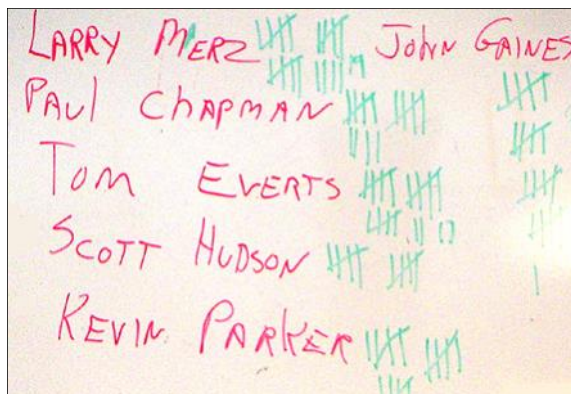 LARRY MERZ JOHN GAINES
PAUL CHAPMAN
TOM EVERTS
SCOTT HUDSON
KEVIN PARKER